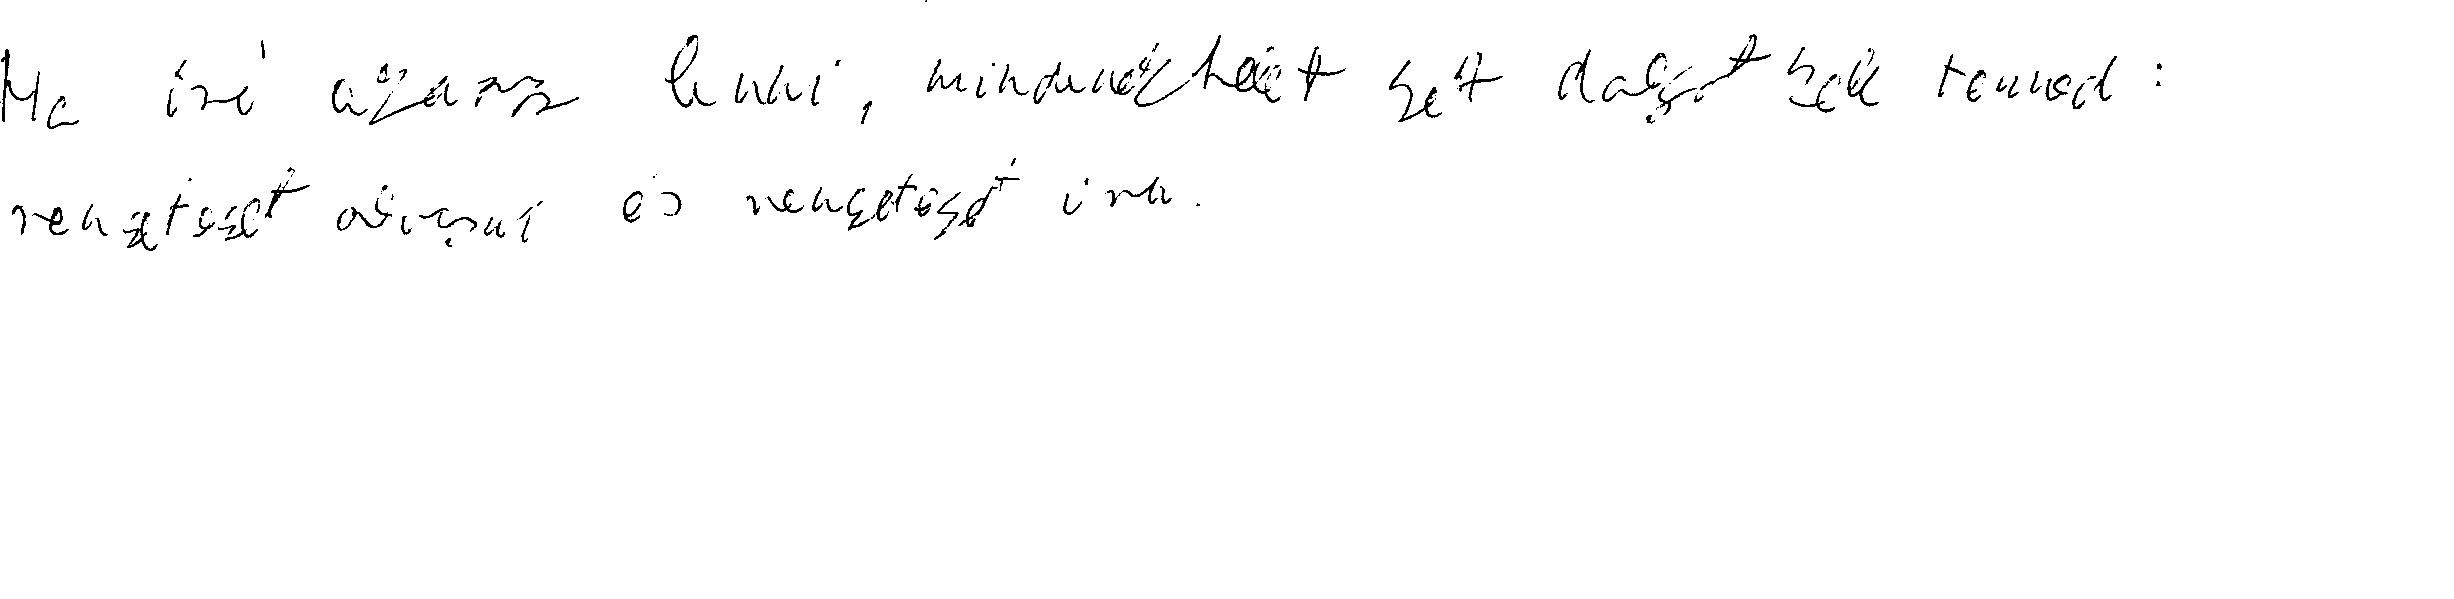 Ha író akarsz lenni, mindenekelőtt két dolgot kell tenned:
rengeteget olvasni és rengeteget írni.